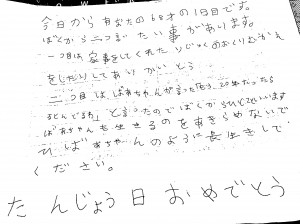 今日からあなたの68才の1日目です。
ばくから二つ言いたい事があります。
一つ目は家事をしてくれたりじゅくのおくりむかえ
をしたりしてありがとう
二つ目はばあちゃんが言った
と言ったのでぼくから
ばあちゃんも生きるのをあきらめないで
ひいばあちゃんのように長生きして
ください。
たんじょう日おめでとう